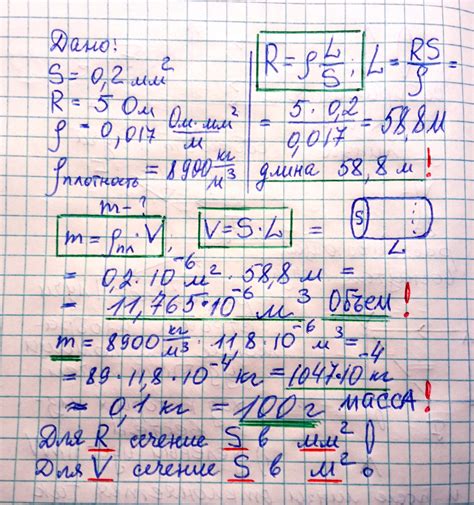 Дано:
S = 0,2 мм²
R = 5 Ом
ρ = 0,017 Ом·мм²/м
ρ плотность = 8900 кг/м³
m - ?
R = ρ L/S ; L = RS/ρ =
= 5·0,2/0,017 = 58,8 м
длина 58,8 м !
m = ρпл · V ; V = S·L = S L
= 0,2·10⁻⁶ м² · 58,8 м =
= 11,765·10⁻⁶ м³ Объем !
m = 8900 кг/м³ · 11,8·10⁻⁶ м³ =
= 89·11,8·10⁻⁴ кг = 1047·10⁻⁴ кг
≈ 0,1 кг = 100 г масса !
Для R сечение S в мм² !
Для V сечение S в м² !